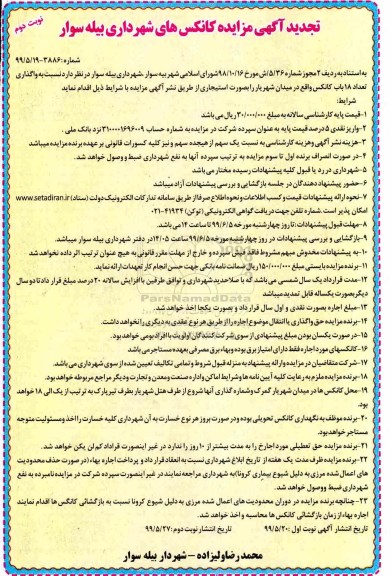 نوبت دوم
تجدید آگهی مزایده کانکس های شهرداری بیله سوار
شماره: ۳۸۸۶-۹۹/۵/۱۹
به استناد به ردیف ۲ مجوز شماره ۵/۳۶/ش مورخ ۹۸/۱۰/۱۶ شورای اسلامی شهر بیله سوار، شهرداری بیله سوار در نظر دارد نسبت به واگذاری
تعداد ۱۸ باب کانکس واقع در میدان شهریار را بصورت استیجاری از طریق نشر آگهی مزایده با شرایط ذیل اقدام نماید
شرایط:
۱- قیمت پایه کارشناسی سالانه به مبلغ ۳۰/۰۰۰/۰۰۰ ریال می باشد
۲- واریز نقدی ۵ درصد قیمت پایه به عنوان سپرده شرکت در مزایده به شماره حساب ۳۱۰۰۰۰۱۶۹۶۰۰۹ نزد بانک ملی.
۳- هزینه نشر آگهی وهزینه کارشناسی به نسبت یک سهم از هیجده سهم و نیز کلیه کسورات قانونی بر عهده برنده مزایده میباشد
۴- در صورت انصراف برنده اول تا سوم مزایده به ترتیب سپرده آنها به نفع شهرداری ضبط و وصول خواهد شد.
۵- شهرداری در رد یا قبول کلیه پیشنهادات رسیده مختار می باشد
۶- حضور پیشنهاد دهندگان در جلسه بازگشایی و بررسی پیشنهادات آزاد میباشد
۷- نحوه ارائه پیشنهادات قیمت و کسب اطلاعات و نحوه اطلاع صرفا از طریق سامانه تدارکات الکترونیک دولت (ستاد) www.setadiran.ir
امکان پذیر است. شماره تلفن جهت دریافت گواهی الکترونیکی (توکن) ۴۱۹۳۴-۰۲۱
۸- مهلت قبول پیشنهادات: تا روز چهارشنبه مورخه ۹۹/۶/۵ تا ساعت ۱۴ می باشد.
۹- بازگشایی و بررسی پیشنهادات در روز چهارشنبه مورخه ۹۹/۶/۵ ساعت ۱۴/۰۵ در دفتر شهرداری بیله سوار میباشد.
۱۰- به پیشنهادات مخدوش مبهم مشروط فاقد فیش سپرده و خارج از مهلت مقرر قانونی به هیچ عنوان ترتیب اثر داده نخواهد شد
۱۱- برنده مزایده بایستی مبلغ ۱۵۰/۰۰۰/۰۰۰ ریال ضمانت نامه بانکی جهت حسن انجام کار تعهدات ارائه نماید.
۱۲- مدت قرارداد یک سال شمسی می باشد که با صلاحدید شهرداری و توافق طرفین با افزایش سالانه ۲۰ درصد مبلغ قرارداد تا دو سال
دیگر بصورت یکساله قابل تمدید میباشد
۱۳- مبلغ اجاره بصورت نقدی و اول سال قرارداد و بصورت یکجا اخذ خواهد شد.
۱۴- برنده مزایده حق واگذاری یا انتقال موضوع اجاره را از طریق هر نوع عقدی به دیگری را نخواهد داشت.
۱۵- در صورت یکسان بودن مبلغ پیشنهادی از سوی شرکت کنندگان اولویت با افراد بومی خواهد بود.
۱۶- کانکسهای مورد اجاره فقط دارای امتیاز برق بوده و بهاء برق مصرفی بعهده مستاجر می باشد
۱۷- شرکت متقاضیان در مزایده و ارائه پیشنهاد به منزله قبول شروط و تمامی تکالیف تعیین شده از سوی شهرداری می باشد.
۱۸- برنده مزایده ملزم به رعایت کلیه آیین نامه ها و شرایط اماکن و اداره صنعت و معدن و تجارت و دیگر مراجع مربوطه خواهد بود.
۱۹- محل کانکس ها در میدان شهریار گمرک و شماره گذاری آنها شروع از طرف هتل شهریار بطرف تیرپارک به ترتیب از یک الی ۱۸ خواهد
بود.
۲۰- برنده موظف به نگهداری کانکس تحویلی بوده و در صورت بروز هر نوع خسارت به آن شهرداری کلیه خسارت را اخذ و مسئولیت متوجه
مستاجر خواهد بود.
۲۱- برنده مزایده حق تعطیلی مورد اجاره را به مدت بیشتر از ۱۰ روز را ندارد در غیر اینصورت قرارداد کم لن یکن خواهد شد.
۲۲- برنده مزایده ظرف مدت یک هفته از تاریخ ابلاغ شهرداری نسبت به انعقاد قرارداد و پرداخت اجاره بهاء (در صورت حذف محدودیت
های اعمال شده مرزی به دلیل شیوع بیماری کرونا) به شهرداری مراجعه نمایند در غیر اینصورت سپرده شرکت در مزایده نامبرده به نفع
شهرداری ضبط و وصول خواهد شد.
۲۳- چنانچه برنده مزایده در دوران محدودیت های اعمال شده مرزی به دلیل شیوع کرونا نسبت به بازگشائی کانکس ها اقدام نمایند
اجاره بهاء از زمان بازگشائی کانکس ها محاسبه و اخذ خواهد شد.
تاریخ انتشار آگهی نوبت اول: ۹۹/۵/۲۰ تاریخ انتشار نوبت دوم: ۹۹/۵/۲۷
محمدرضا ولیزاده - شهردار بیله سوار
ParsNamadData